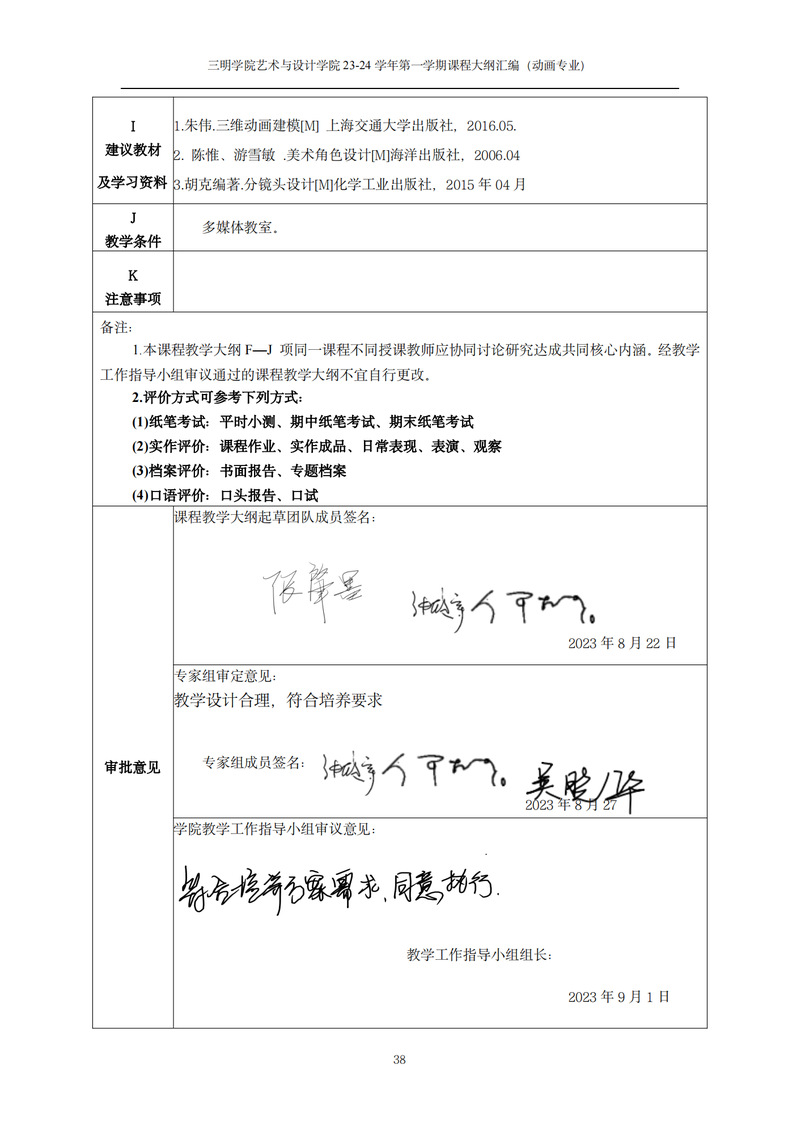 三明学院艺术与设计学院 23-24 学年第一学期课程大纲汇编（动画专业）
I
建议教材
及学习资料
1.朱伟.三维动画建模[M] 上海交通大学出版社，2016.05.
2. 陈惟、游雪敏 .美术角色设计[M]海洋出版社，2006.04
3.胡克编著.分镜头设计[M]化学工业出版社，2015 年 04 月
J
教学条件
多媒体教室。
K
注意事项
备注：
1.本课程教学大纲 F—J 项同一课程不同授课教师应协同讨论研究达成共同核心内涵。经教学
工作指导小组审议通过的课程教学大纲不宜自行更改。
2.评价方式可参考下列方式：
(1)纸笔考试：平时小测、期中纸笔考试、期末纸笔考试
(2)实作评价：课程作业、实作成品、日常表现、表演、观察
(3)档案评价：书面报告、专题档案
(4)口语评价：口头报告、口试
审批意见
课程教学大纲起草团队成员签名：
2023 年 8 月 22 日
专家组审定意见：
教学设计合理，符合培养要求
专家组成员签名：
2023 年 8 月 27
学院教学工作指导小组审议意见：
符合培养方案需求，同意执行.
教学工作指导小组组长：
2023 年 9 月 1 日
38